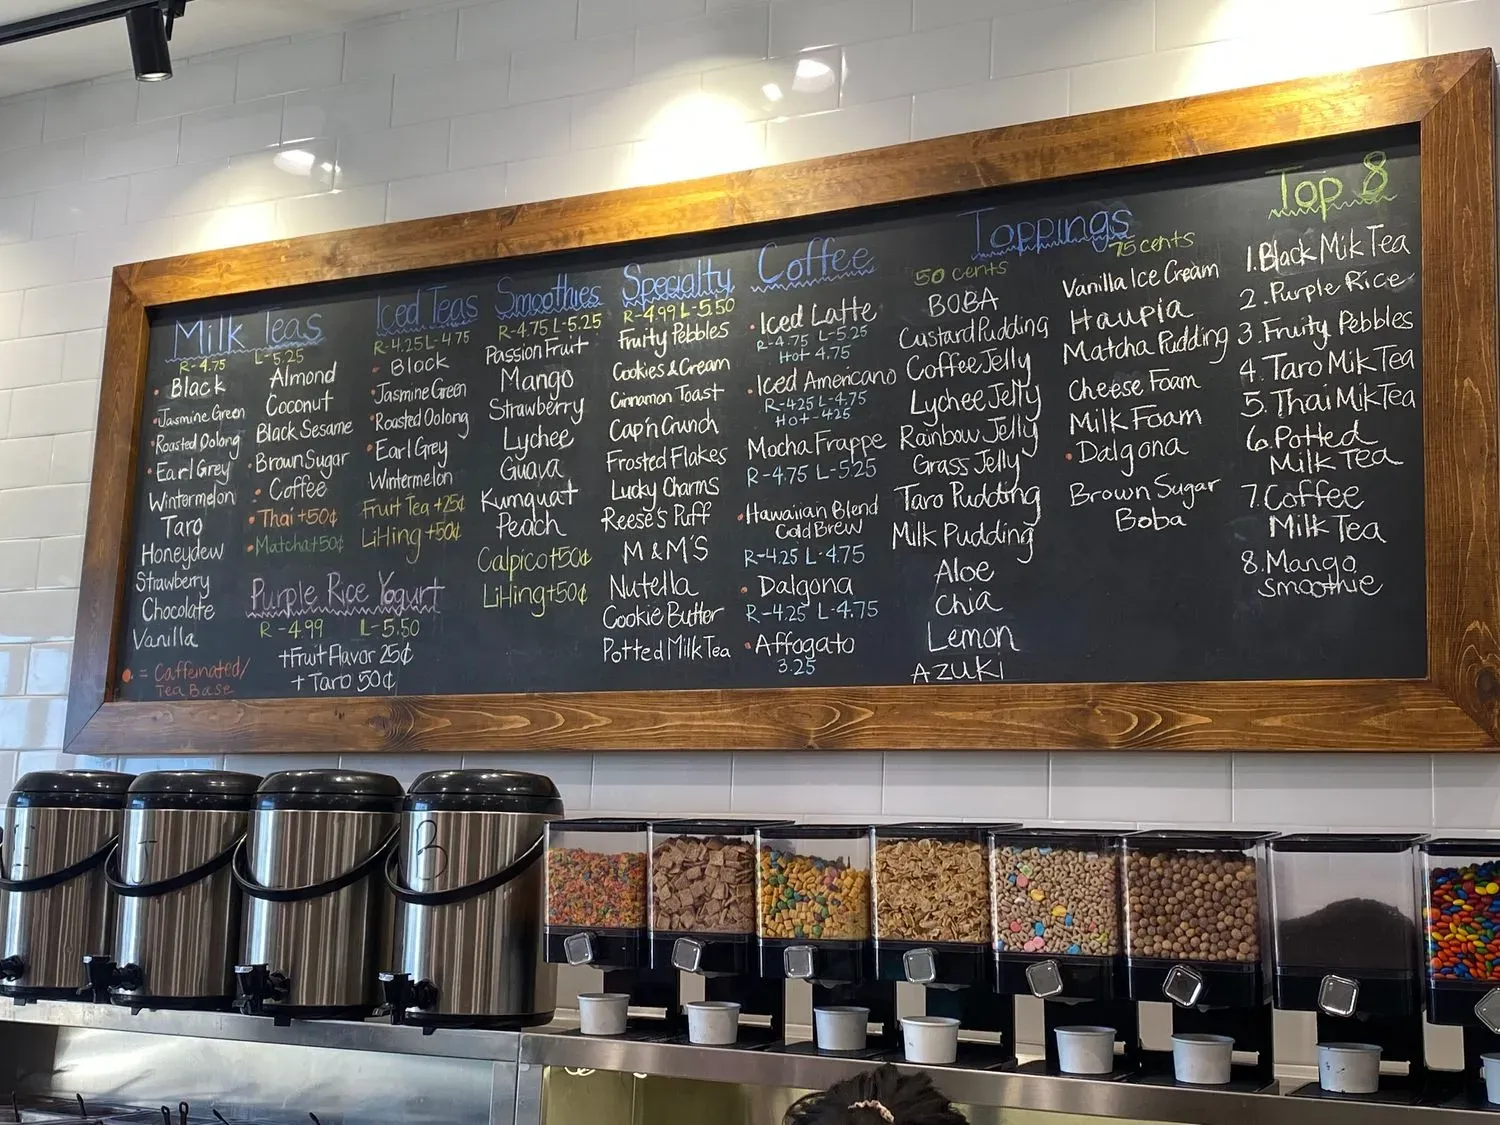 Milk Teas
R-4.75 L-5.25
Black
Jasmine Green
Roasted Oolong
Earl Grey
Wintermelon
Taro
Honeydew
Strawberry
Chocolate
Vanilla
= Caffeinated/
Tea Base
Almond
Coconut
Black Sesame
Brown Sugar
Coffee
Thai +50¢
Matcha+50¢
Purple Rice Yogurt
R-4.99 L-5.50
+Fruit Flavor 25¢
+ Taro 50¢
Iced Teas
R-4.25 L-4.75
Black
Jasmine Green
Roasted Oolong
Earl Grey
Wintermelon
Fruit Tea +25¢
LiHing +50¢
Smoothies
R-4.75 L-5.25
Passion Fruit
Mango
Strawberry
Lychee
Guava
Kumquat
Peach
Calpico+50¢
LiHing+50¢
Specialty
R-4.99 L-5.50
Fruity Pebbles
Cookies & Cream
Cinnamon Toast
Cap'n Crunch
Frosted Flakes
Lucky Charms
Reese's Puff
M & M'S
Nutella
Cookie Butter
Potted Milk Tea
Coffee
Iced Latte
R-4.75 L-5.25
Hot 4.75
Iced Americano
R-4.25 L-4.75
Hot-4.25
Mocha Frappe
R-4.75 L-5.25
Hawaiian Blend
Cold Brew
R-4.25 L-4.75
Dalgona
R-4.25 L-4.75
Affogato
3.25
Toppings
50 cents
BOBA
Custard Pudding
Coffee Jelly
Lychee Jelly
Rainbow Jelly
Grass Jelly
Taro Pudding
Milk Pudding
Aloe
Chia
Lemon
AZUKI
75 cents
Vanilla Ice Cream
Haupia
Matcha Pudding
Cheese Foam
Milk Foam
Dalgona
Brown Sugar
Boba
Top 8
1. Black Milk Tea
2. Purple Rice
3. Fruity Pebbles
4. Taro Milk Tea
5. Thai Milk Tea
6. Potted
Milk Tea
7. Coffee
Milk Tea
8. Mango
Smoothie
B